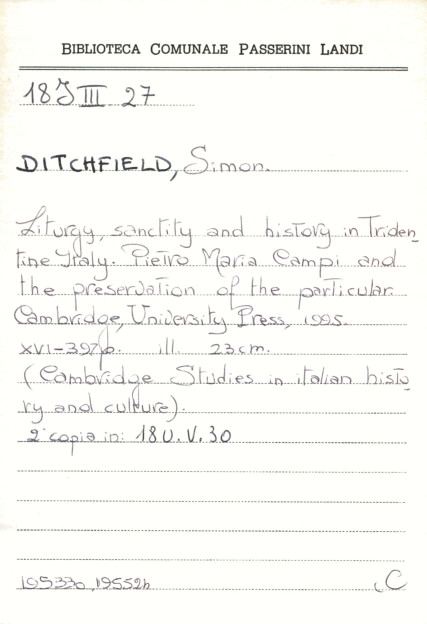 BIBLIOTECA COMUNALE PASSERINI LANDI
18 J III 27
DITCHFIELD, Simon.
Liturgy, sanctity and history in Triden
tine Italy. Pietro Maria Campi and
the preservation of the particular.
Cambridge, University Press, 1995.
XVI-397 p. ill. 23 cm.
(Cambridge Studies in italian histo
ry and culture).
2ª copia in: 18 U. V. 30
C